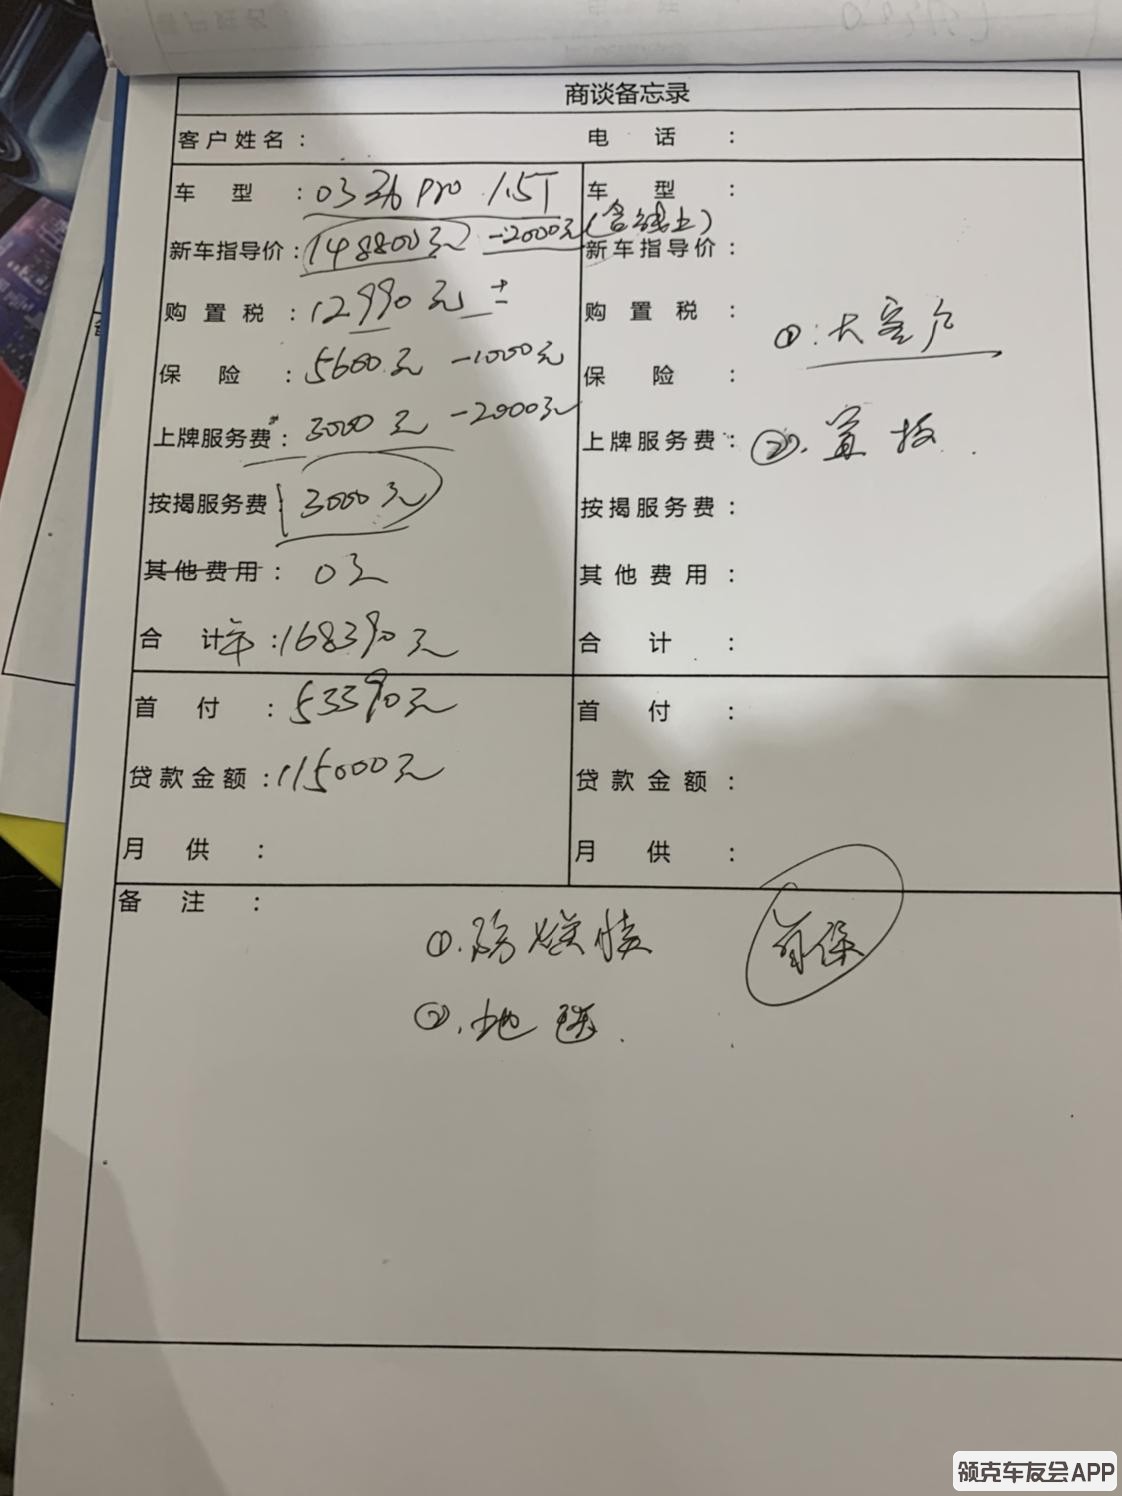 商谈备忘录
客户姓名：
电话：
车型：03 劲Pro 1.5T
车型：
新车指导价：148800元 -2000元(含线上)
新车指导价：
购置税：12990元 ±
购置税：
①：大客户
保险：5600元 -1000元
保险：
上牌服务费：3000元 -2000元
上牌服务费：
②、置换
按揭服务费：3000元
按揭服务费：
其他费用：0元
其他费用：
合计：168390元
合计：
首付：53390元
首付：
贷款金额：115000元
贷款金额：
月供：
月供：
备注：
①.防爆膜
②.地毯.
领克车友会APP